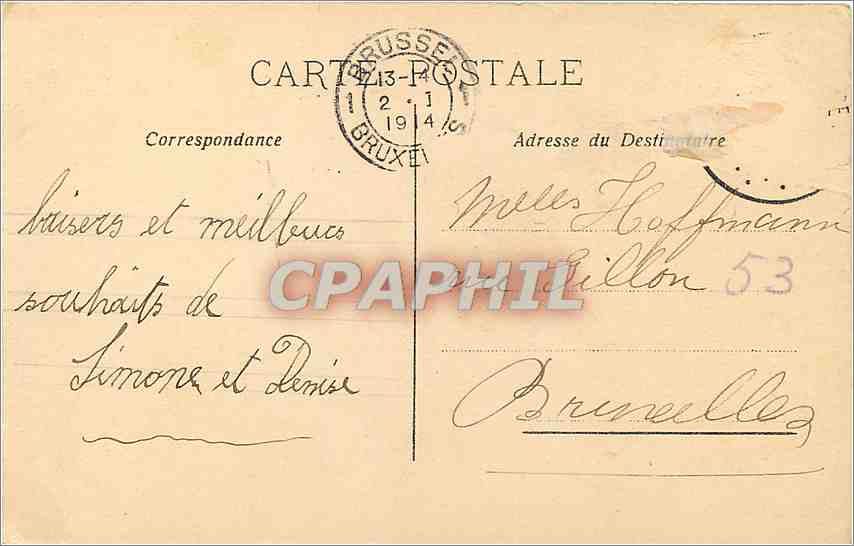 CARTE POSTALE
BRUSSEL
13-
2 · I
1914
1
S
BRUXEL
Correspondance
Adresse du Destinataire
baisers et meilleurs
souhaits de
Simone et Denise
Melles Hoffmann
rue Gillon 53
Bruxelles
CPAPHIL